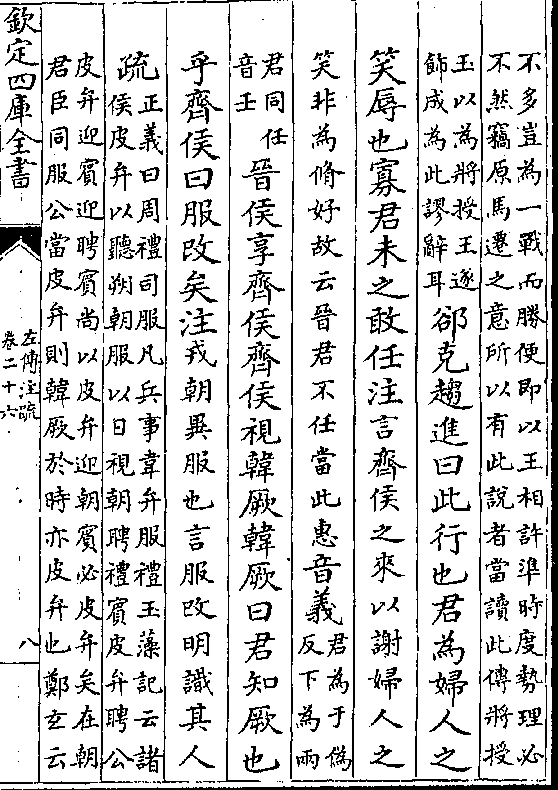 不多豈為一戰而勝便即以王相許準時度勢理必
不然竊原馬遷之意所以有此說者當讀此傳將授
玉以為將授王遂
飾成為此謬辭耳
郤克趨進曰此行也君為婦人之
笑辱也寡君未之敢任注言齊侯之來以謝婦人之
笑非為脩好故云晉君不任當此惠音義
君為于偽
反下為兩
君同任
音壬
晉侯享齊侯齊侯視韓厥韓厥曰君知厥也
乎齊侯曰服改矣注戎朝異服也言服改明識其人
疏
正義曰周禮司服凡兵事韋弁服禮玉藻記云諸
侯皮弁以聽朔朝服以日視朝聘禮賓皮弁聘公
皮弁迎賓迎聘賓尚以皮弁迎朝賓必皮弁矣在朝
君臣同服公當皮弁則韓厥於時亦皮弁也鄭玄云
欽定四庫全書
左傳注疏
卷二十六
八